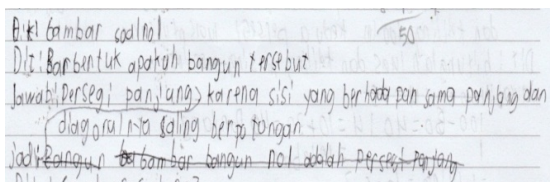 50
Dik: Gambar soal no 1
Dit: Barbentuk apakah bangun tersebut
Jawab: Persegi panjang, karena sisi yang berhadapan sama panjang dan
diagonalnya saling berpotongan
Jadi: Bangun gambar bangun no 1 adalah persegi panjang